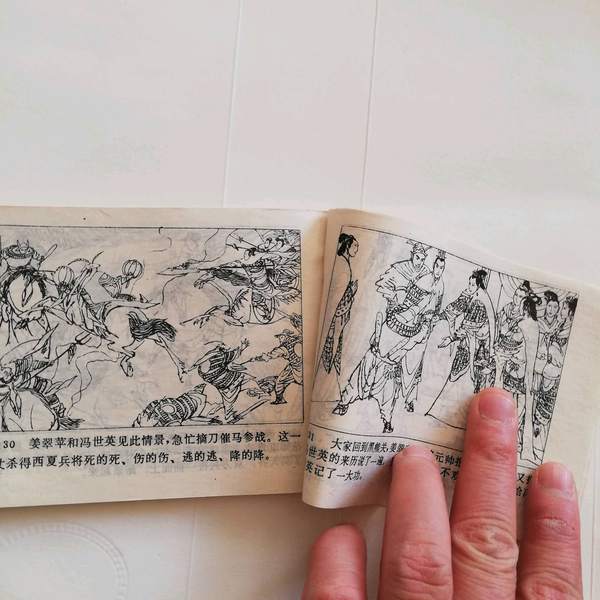 30 姜翠苹和冯世英见此情景,急忙摘刀催马参战。这一
仕杀得西夏兵将死的死、伤的伤、逃的逃、降的降。
大家回到黑熊关,姜翠 元帅
世英的来历说了一遍 不 又
英记了一大功。